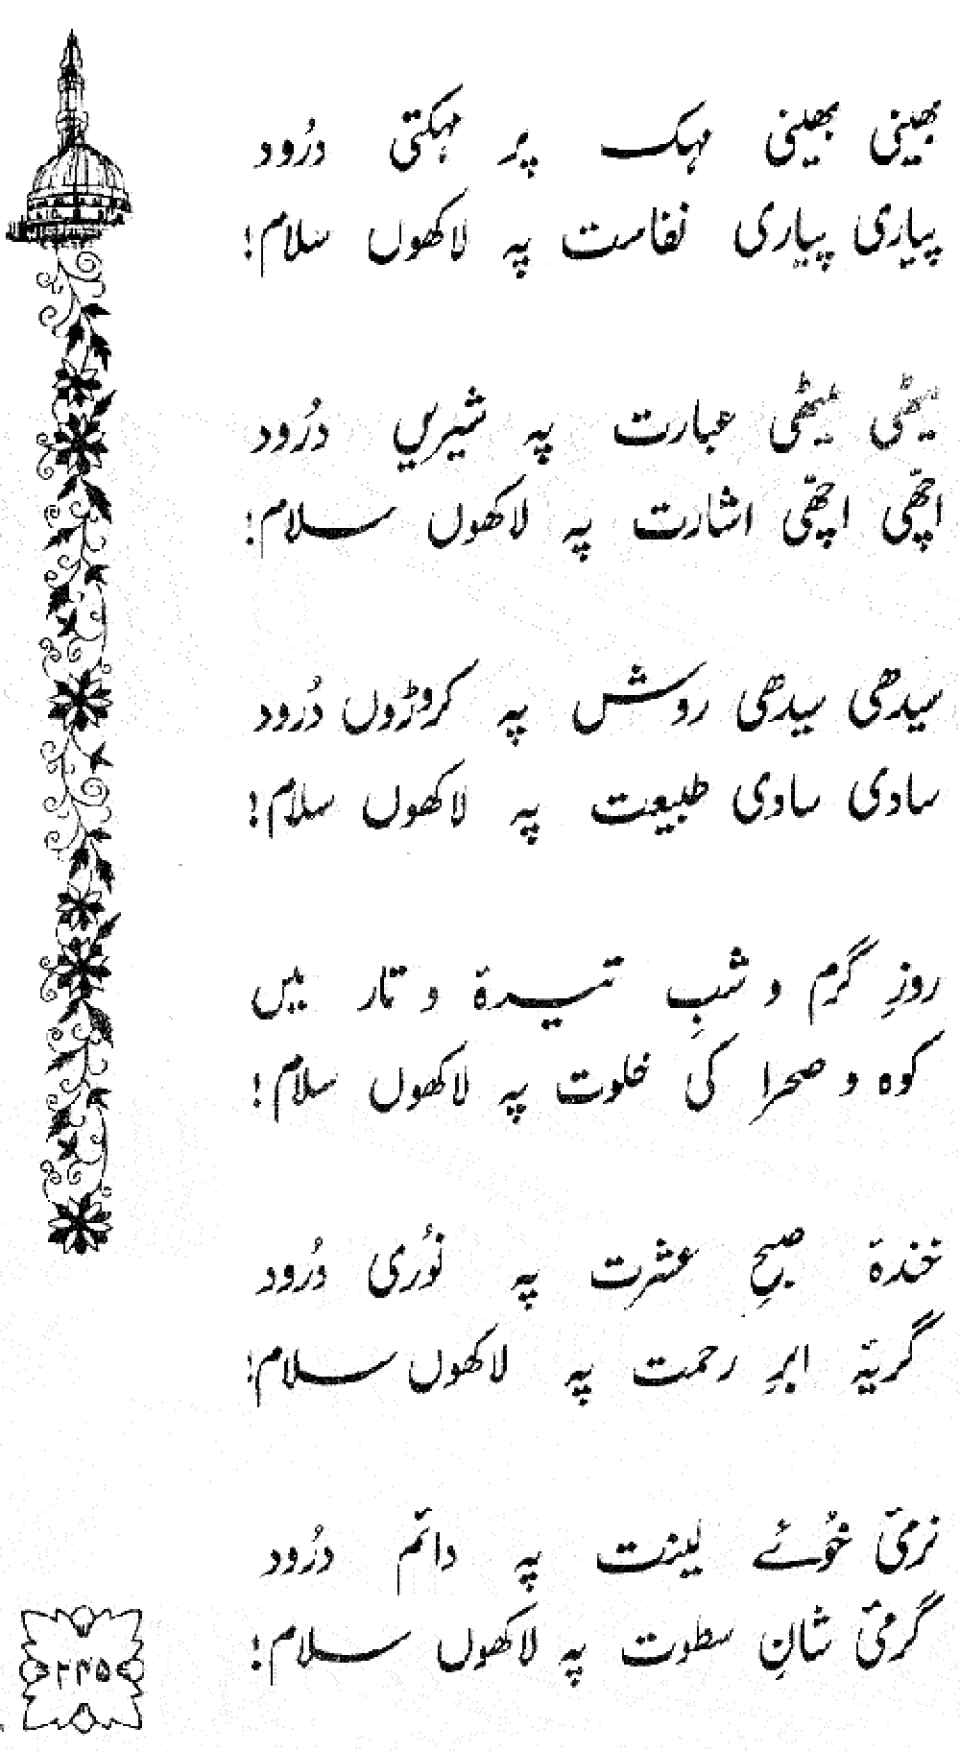 بھینی بھینی مہک پر مہکتی دُرُود
پیاری پیاری نفاست پہ لاکھوں سلام!
میٹھی میٹھی عبارت پہ شیریں دُرُود
اچھّی اچھّی اشارت پہ لاکھوں سلام!
سیدھی سیدھی روش پہ کروڑوں دُرُود
سادی سادی طبیعت پہ لاکھوں سلام!
روزِ گرم و شبِ تیرہٴ و تار میں
کوہ و صحرا کی خلوت پہ لاکھوں سلام!
خندہٴ صبحِ عشرت پہ نُوری دُرُود
گریۂ ابرِ رحمت پہ لاکھوں سلام!
نرمیٔ خُوئے لینت پہ دائم دُرُود
گرمیٔ شانِ سطوت پہ لاکھوں سلام!